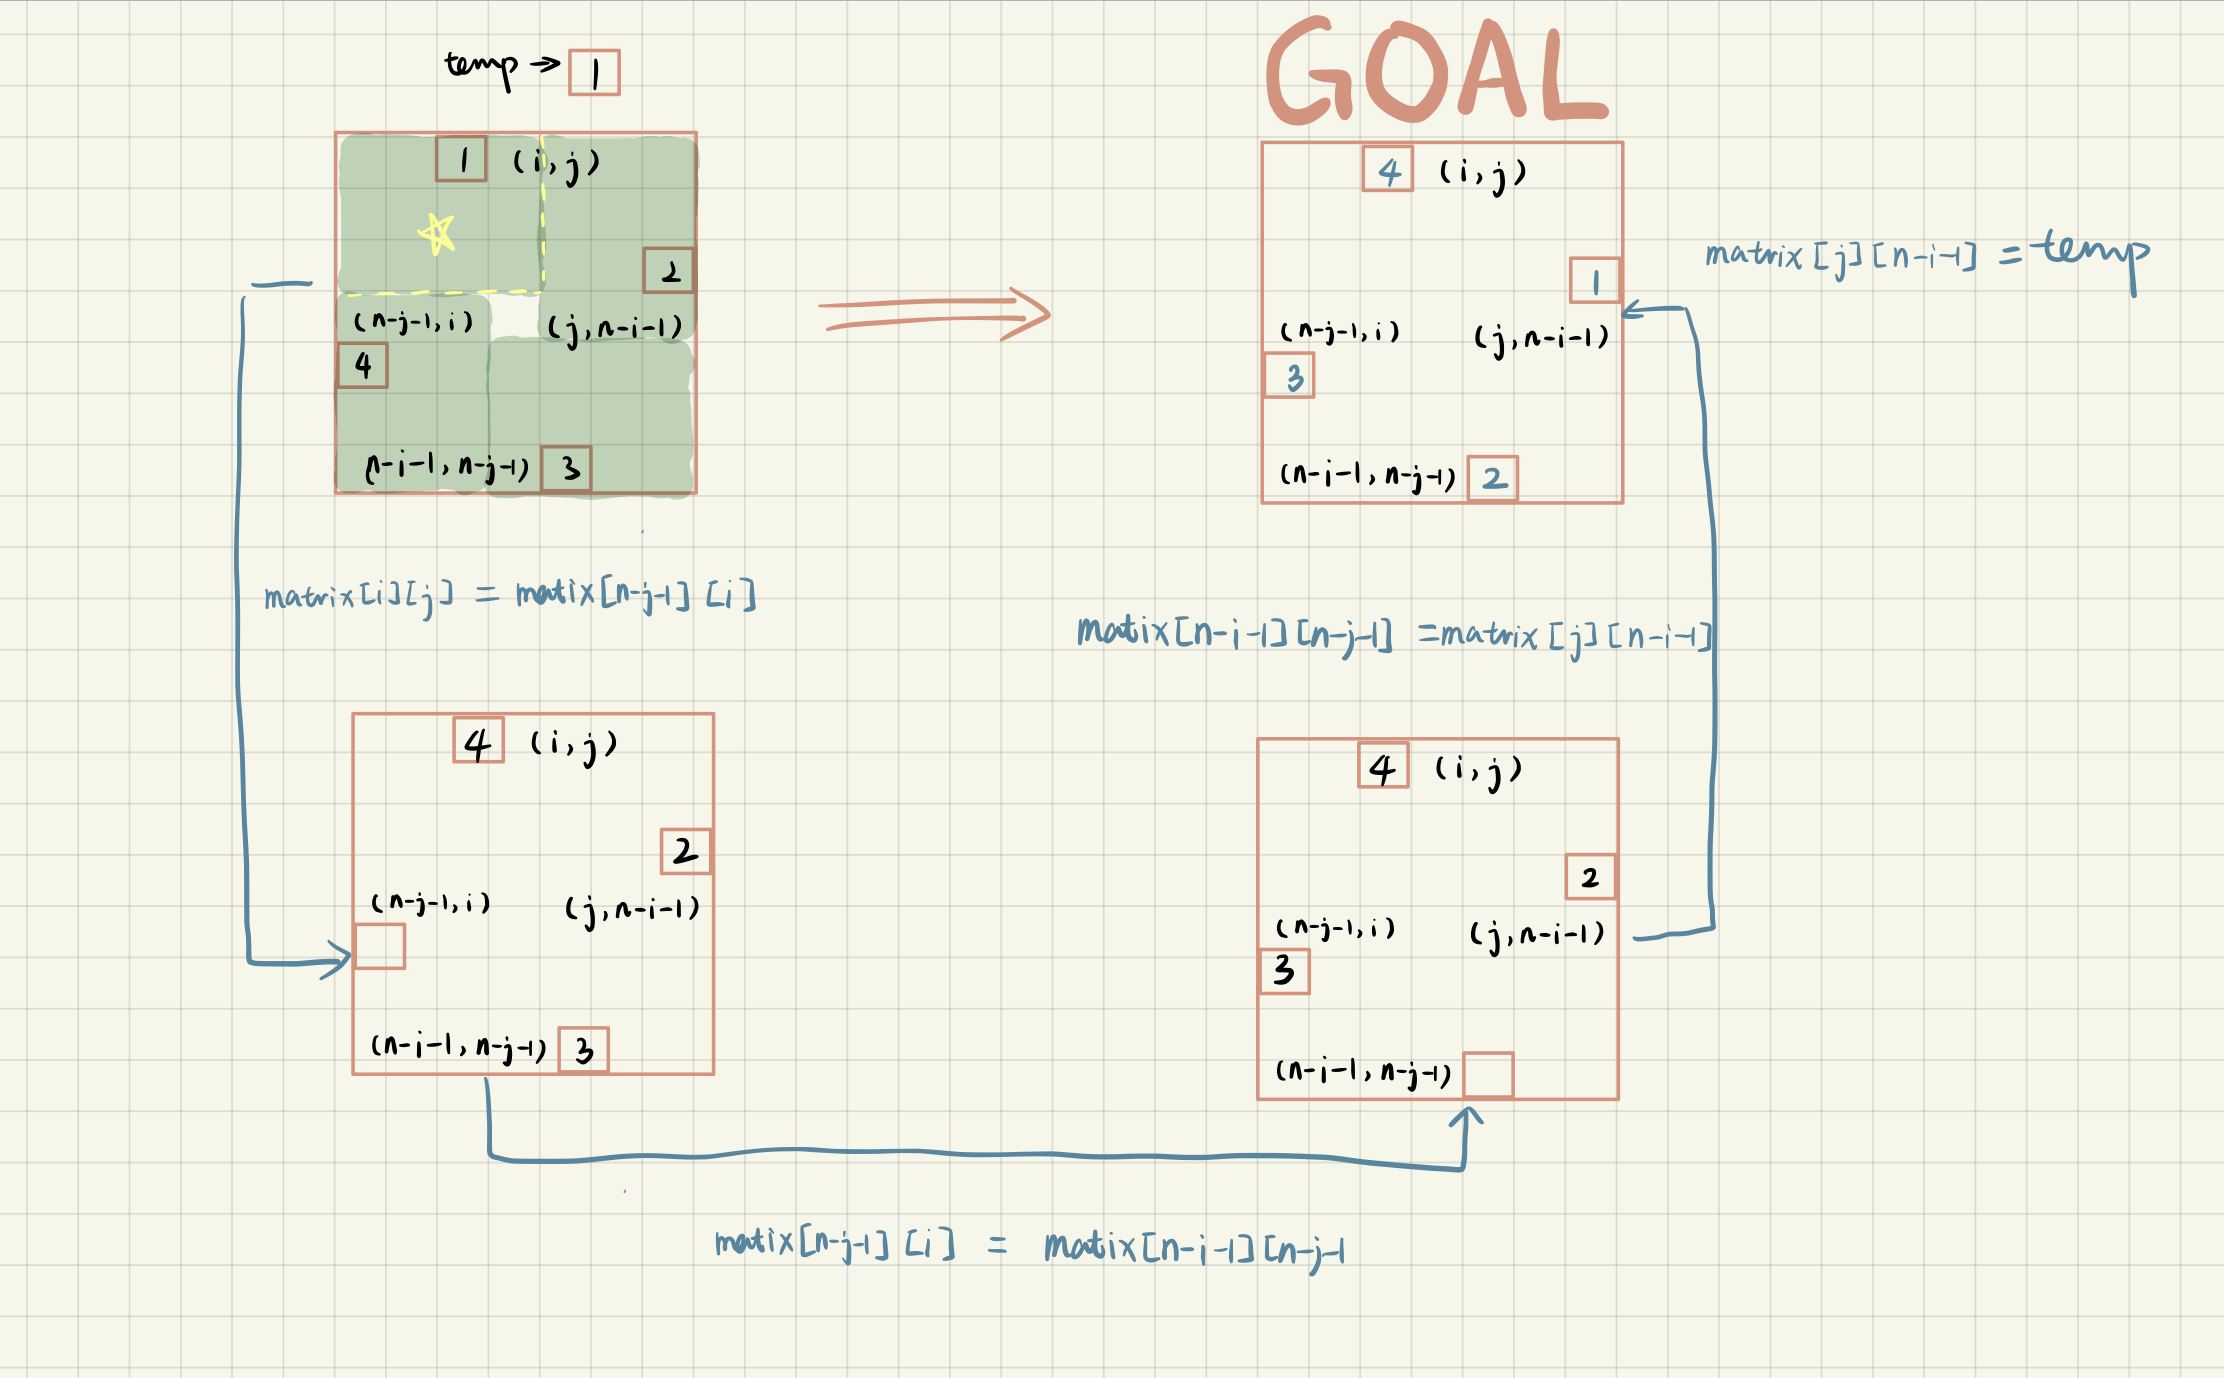 temp → 1
1 (i,j)
2
(n-j-1,i) (j,n-i-1)
4
(n-i-1,n-j-1) 3
GOAL
4 (i,j)
1
(n-j-1,i) (j,n-i-1)
3
(n-i-1,n-j-1) 2
matrix[j][n-i-1] = temp
matrix[i][j] = matix[n-j-1][i]
matix[n-i-1][n-j-1] =matrix[j][n-i-1]
4 (i,j)
2
(n-j-1,i) (j,n-i-1)
(n-i-1,n-j-1) 3
4 (i,j)
2
(n-j-1,i) (j,n-i-1)
3
(n-i-1,n-j-1)
matix[n-j-1][i] = matix[n-i-1][n-j-1